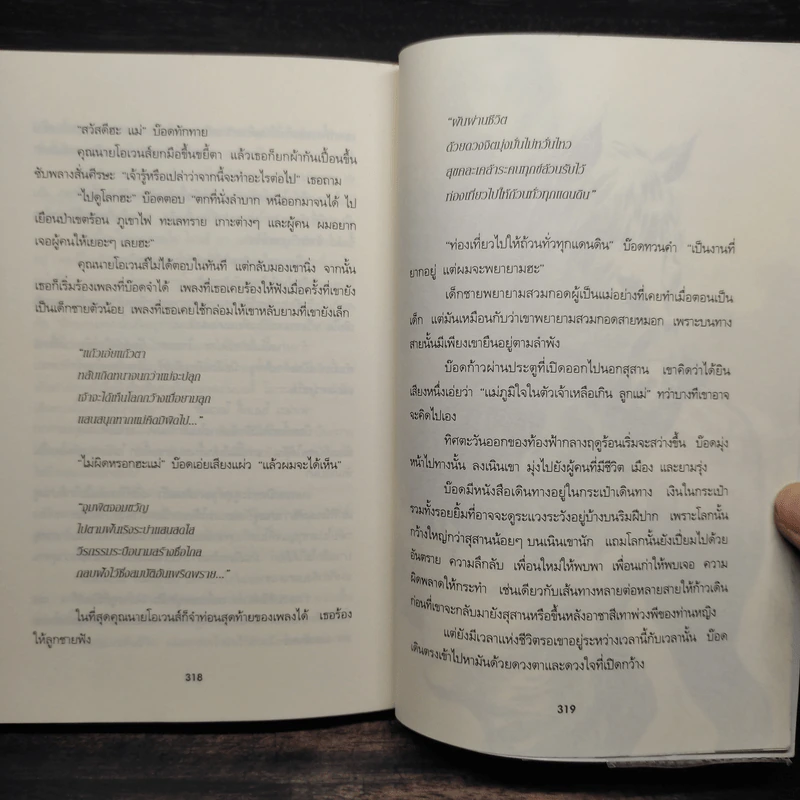 "สวัสดีฮะ แม่" บ๊อดทักทาย
คุณนายโอเวนส์ยกมือขึ้นขยี้ตา แล้วเธอก็ยกผ้ากันเปื้อนขึ้น
ซับพลางสั่นศีรษะ "เจ้ารู้หรือเปล่าว่าจากนี้จะทำอะไรต่อไป" เธอถาม
"ไปดูโลกฮะ" บ๊อดตอบ "ตกที่นั่งลำบาก หนีออกมาจนได้ ไป
เยือนป่าเขตร้อน ภูเขาไฟ ทะเลทราย เกาะต่างๆ และผู้คน ผมอยาก
เจอผู้คนให้เยอะๆ เลยฮะ"
คุณนายโอเวนส์ไม่ได้ตอบในทันที แต่กลับมองเขานิ่ง จากนั้น
เธอก็เริ่มร้องเพลงที่บ๊อดจำได้ เพลงที่เธอเคยร้องให้ฟังเมื่อครั้งที่เขายัง
เป็นเด็กชายตัวน้อย เพลงที่เธอเคยใช้กล่อมให้เขาหลับยามที่เขายังเล็ก
"แก้วเอ๋ยแก้วตา
หลับเถิดหนาจนกว่าแม่จะปลุก
เจ้าจะได้เห็นโลกกว้างเมื่อยามลุก
แสนสนุกหากแม่คิดมิผิดไป..."
"ไม่ผิดหรอกฮะแม่" บ๊อดเอ่ยเสียงแผ่ว "แล้วผมจะได้เห็น"
"จุมพิตจอมขวัญ
ไปตามฝันเริงระบำแสนสดใส
วีรกรรมระบือนามสร้างชื่อไกล
กลบฝังไว้ซึ่งสมบัติอันเพริดพราย..."
ในที่สุดคุณนายโอเวนส์ก็จำท่อนสุดท้ายของเพลงได้ เธอร้อง
ให้ลูกชายฟัง
318
"ฟันฝ่านชีวิต
ด้วยดวงจิตมุ่งมั่นไม่หวั่นไหว
สุขคละเคล้าระคนทุกข์ล้วนรับไว้
ท่องเที่ยวไปให้ถ้วนทั่วทุกแดนดิน"
"ท่องเที่ยวไปให้ถ้วนทั่วทุกแดนดิน" บ๊อดทวนคำ "เป็นงานที่
ยากอยู่ แต่ผมจะพยายามฮะ"
เด็กชายพยายามสวมกอดผู้เป็นแม่อย่างที่เคยทำเมื่อตอนเป็น
เด็ก แต่มันเหมือนกับว่าเขาพยายามสวมกอดสายหมอก เพราะบนทาง
สายนั้นมีเพียงเขายืนอยู่ตามลำพัง
บ๊อดก้าวผ่านประตูที่เปิดออกไปนอกสุสาน เขาคิดว่าได้ยิน
เสียงหนึ่งเอ่ยว่า "แม่ภูมิใจในตัวเจ้าเหลือเกิน ลูกแม่" ทว่าบางทีเขาอาจ
จะคิดไปเอง
ทิศตะวันออกของท้องฟ้ากลางฤดูร้อนเริ่มจะสว่างขึ้น บ๊อดมุ่ง
หน้าไปทางนั้น ลงเนินเขา มุ่งไปยังผู้คนที่มีชีวิต เมือง และยามรุ่ง
บ๊อดมีหนังสือเดินทางอยู่ในกระเป๋าเดินทาง เงินในกระเป๋า
รวมทั้งรอยยิ้มที่อาจจะดูระแวงระวังอยู่บ้างบนริมฝีปาก เพราะโลกนั้น
กว้างใหญ่กว่าสุสานน้อยๆ บนเนินเขานัก แถมโลกนั้นยังเปี่ยมไปด้วย
อันตราย ความลึกลับ เพื่อนใหม่ให้พบพา เพื่อนเก่าให้พบเจอ ความ
ผิดพลาดให้กระทำ เช่นเดียวกับเส้นทางหลายต่อหลายสายให้ก้าวเดิน
ก่อนที่เขาจะกลับมายังสุสานหรือขึ้นหลังอาชาสีเทาพ่วงพีของท่านหญิง
แต่ยังมีเวลาแห่งชีวิตรอเขาอยู่ระหว่างเวลานี้กับเวลานั้น บ๊อด
เดินตรงเข้าไปหามันด้วยดวงตาและดวงใจที่เปิดกว้าง
319